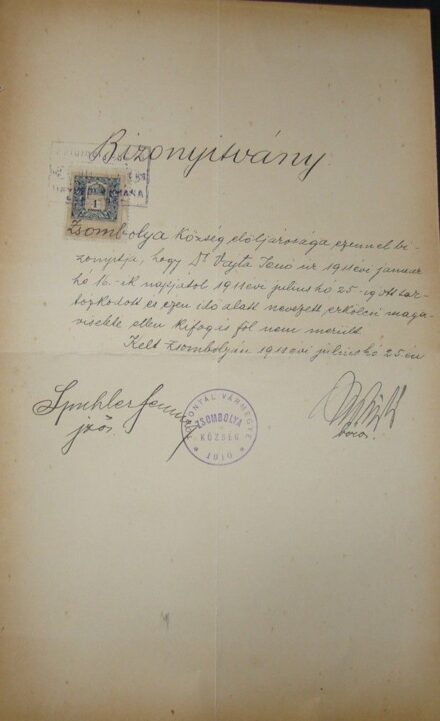 Bizonyitvány
1
Zsombolya Község elöljárósága ezennel bi-
zonyitja, hogy Dr Vajta Jenő úr 1911 évi január
hó 16.-ik napjától 1911 évi julius hó 25-ig ott tar-
tozkodott és ezen idő alatt nevezett erkölcsi maga-
viselete ellen kifogás föl nem merült.
Kelt Zsombolyán 1911 évi julius hó 25-én
Spuhler
jző.
TORONTÁL VÁRMEGYE
ZSOMBOLYA
KÖZSÉG
1910
biró